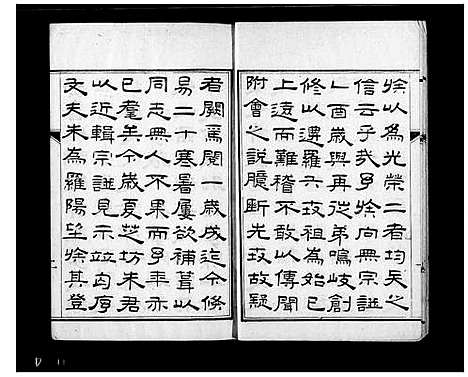 族以為光榮二者均失之
信云乎哉予族向無宗譜
乙酉歲與再從弟鳴岐創
修以遷羅六世祖為始已
上遠而難稽不敢以傳聞
附會之說臆斷先世故疑
者闕焉閱一歲成迄今倏
易二十寒暑屢欲補葺以
同志無人不果而予年亦
已耄矣今歲夏芝坊朱君
以近輯宗譜見示竝匄序
文夫朱為羅陽望族其登